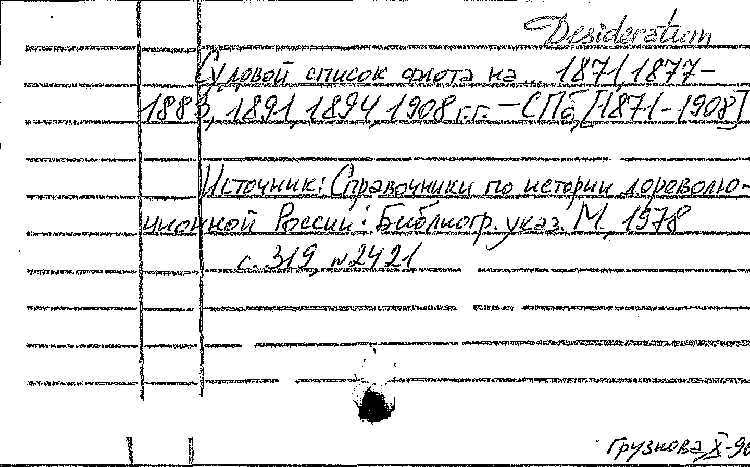 Desideratum
Судовой список флота на... 1871, 1877-
1883, 1891, 1894, 1908 г.г. — СПб, [1871-1908]
Источник: Справочники по истории дореволю-
ционной России: Библиогр. указ. М, 1978
с. 319, №2421
Грузнова X-90